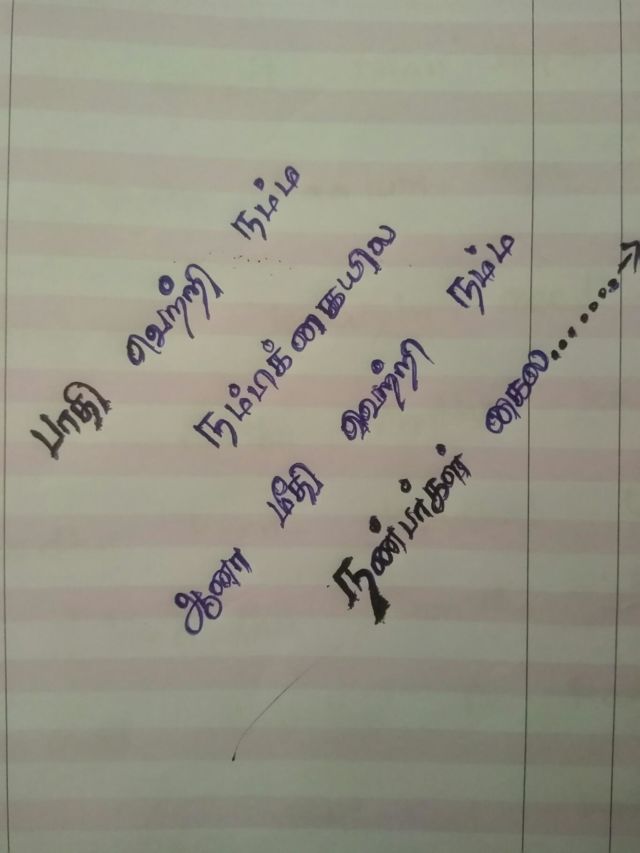 பாதி வெற்றி நம்ம
நம்பிக்கையில
ஆனா மீதி வெற்றி நம்ம
நண்பர்கள் கைல.........